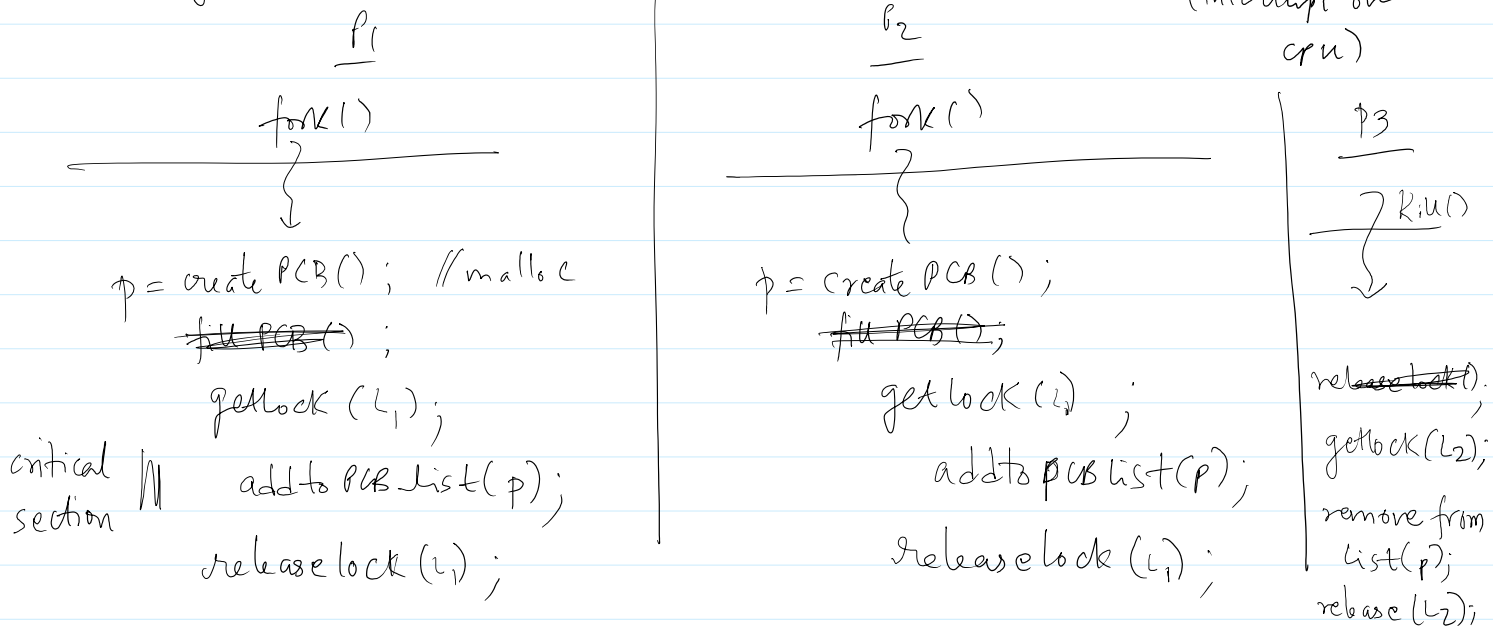 P1
fork()
p = create PCB(); //malloc
fill PCB();
getlock (L1);
critical
section
addto PCB list(p);
release lock (L1);
P2
fork()
p = create PCB();
fill PCB();
getlock (L1);
addto PCB list(p);
release lock (L1);
(interrupt on
cpu)
P3
kill()
releaselock();
getlock(L2);
remove from
list(p);
release(L2);